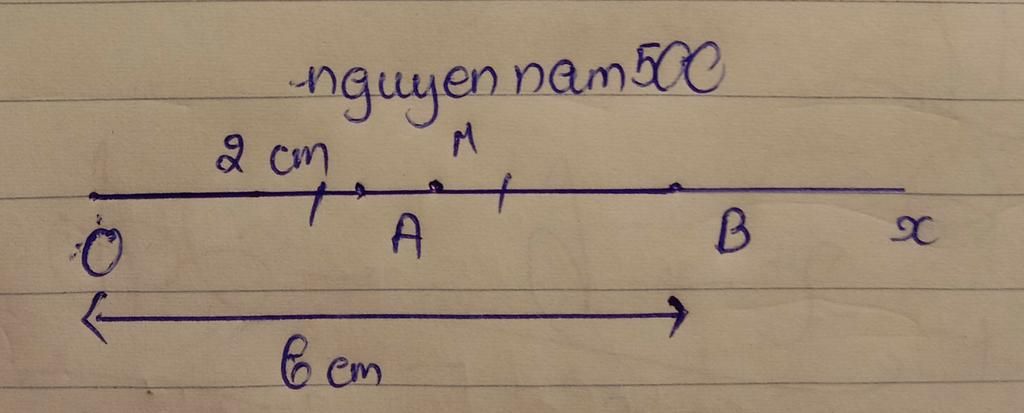 nguyen nam 500
2 cm M
O A B x
6 cm